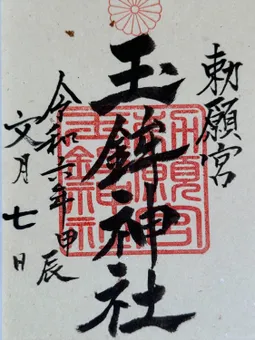 勅願宮
玉鉾神社
令和六年 甲辰
文月 七日